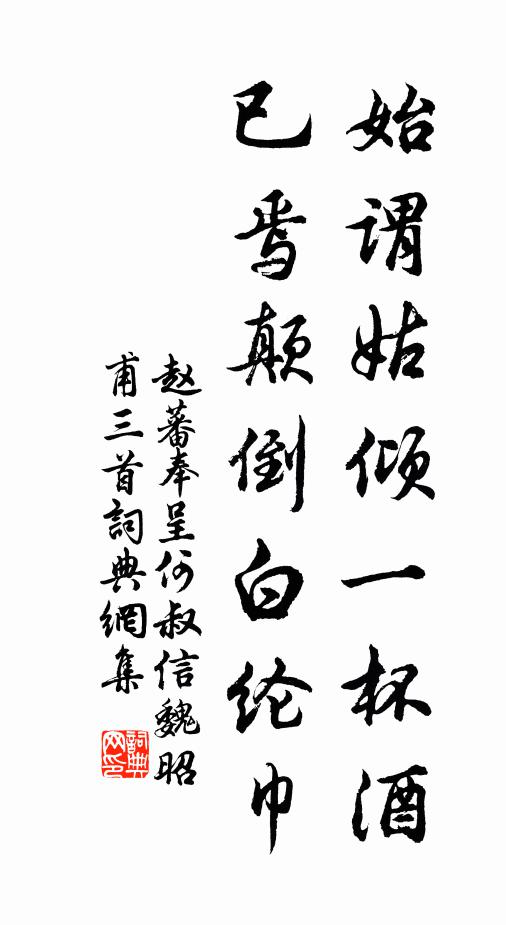 始谓姑倾一杯酒
已焉颠倒白纶巾
赵蕃奉呈何叔信魏昭
甫三首詞典網集
詞典
网印